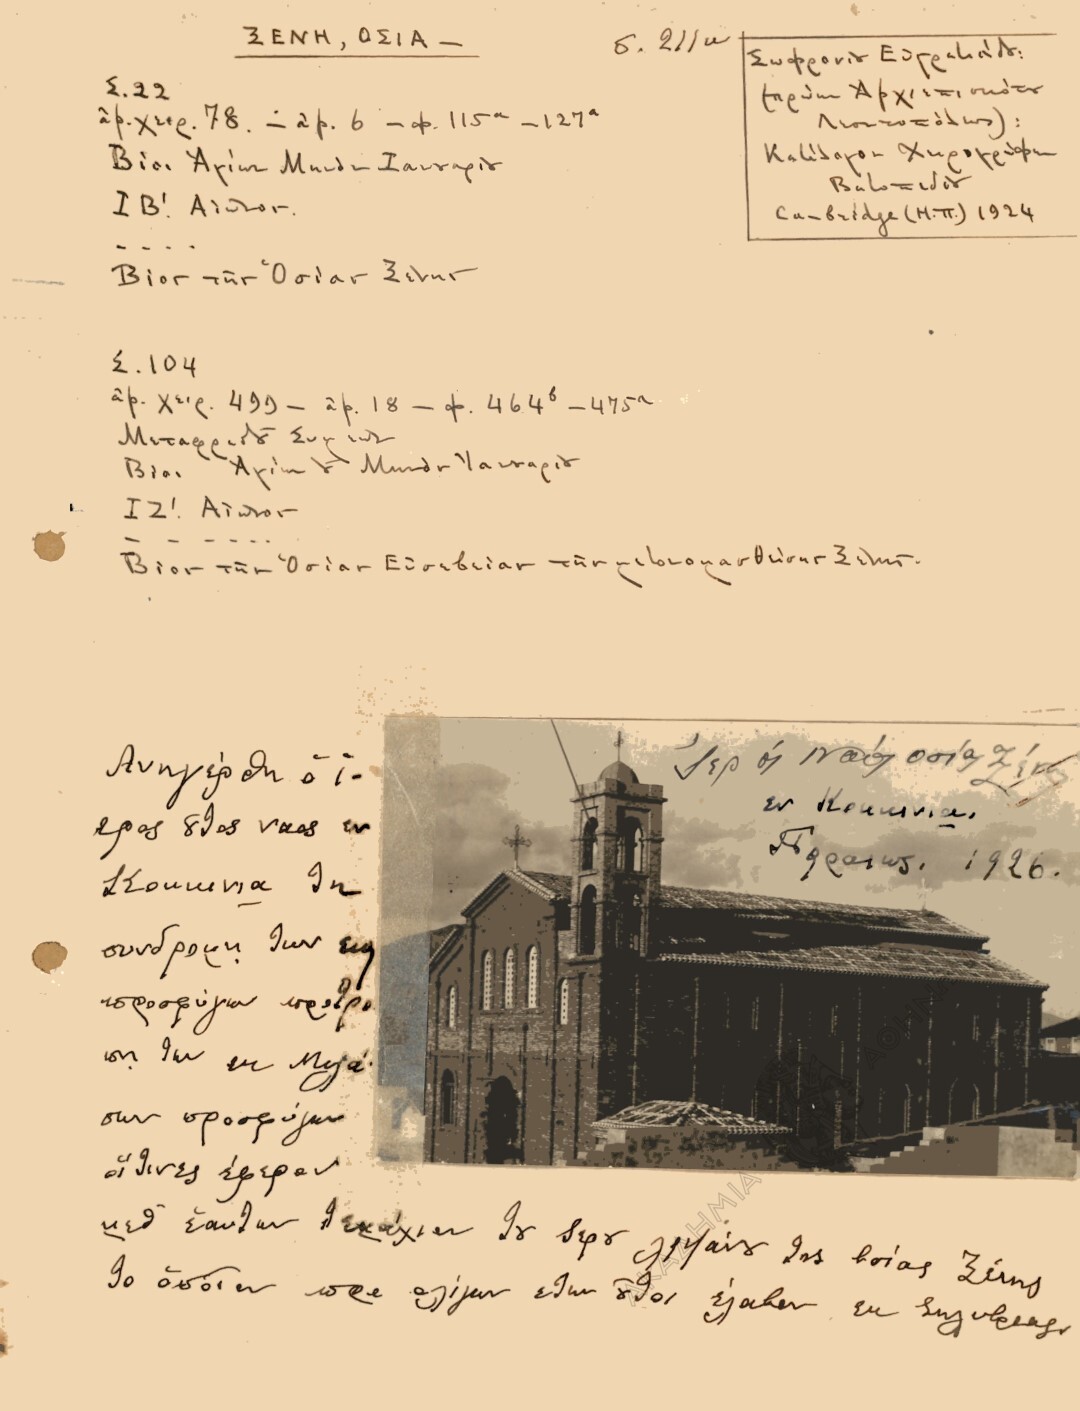 ΞΕΝΗ, ΟΣΙΑ —
σ. 211α
Σωφρονίου Εὐστρατιάδου:
(πρώην Ἀρχιεπισκόπου
Λεοντοπόλεως):
Κατάλογος Χειρογράφων
Βατοπεδίου
Cambridge (Η.Π.) 1924
Σ. 22
ἀρ. χειρ. 78. – ἀρ. 6 – φ. 115α – 127α
Βίοι Ἁγίων Μηνὸς Ἰανουαρίου
ΙΒ'. Αἰῶνος.
- - - -
Βίος τῆς Ὁσίας Ξένης
Σ. 104
ἀρ. χειρ. 499 – ἀρ. 18 – φ. 464β – 475α
Μεταφραστοῦ Συμεὼν
Βίοι Ἁγίων τοῦ Μηνὸς Ἰανουαρίου
ΙΖ'. Αἰῶνος
- - - - - - -
Βίος τῆς Ὁσίας Εὐσεβείας τῆς μετονομασθείσης Ξένης.
Ιερός ναός οσίας Ξένης
εν Κοκκινια.
Πηραιως. 1926.
Ανηγέρθη ὁ ἱ-
ερος ουτος ναος εν
Κοκκινια τη
συνδρομη των εκ
προσφύγων
των εκ
σων προσφύγων
οἵτινες έφερον
μεθ ἑαυτων τεμάχιον του Ιερου λειψάνου της οσίας Ξένης
το ὁποῖον προ ολίγων ετων ουτοι έλαβον εκ Σηλυβριας
ΑΚΑΔΗΜΙΑ ΑΘΗΝΩΝ